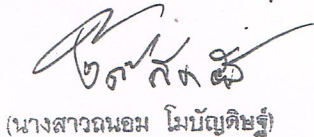 (นางสาวถนอม โมบัญดิษฐ์)